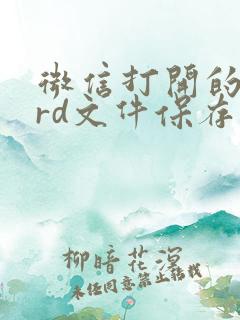 微信打開的
rd文件保存
柳暗花溟
未任同意禁止转载